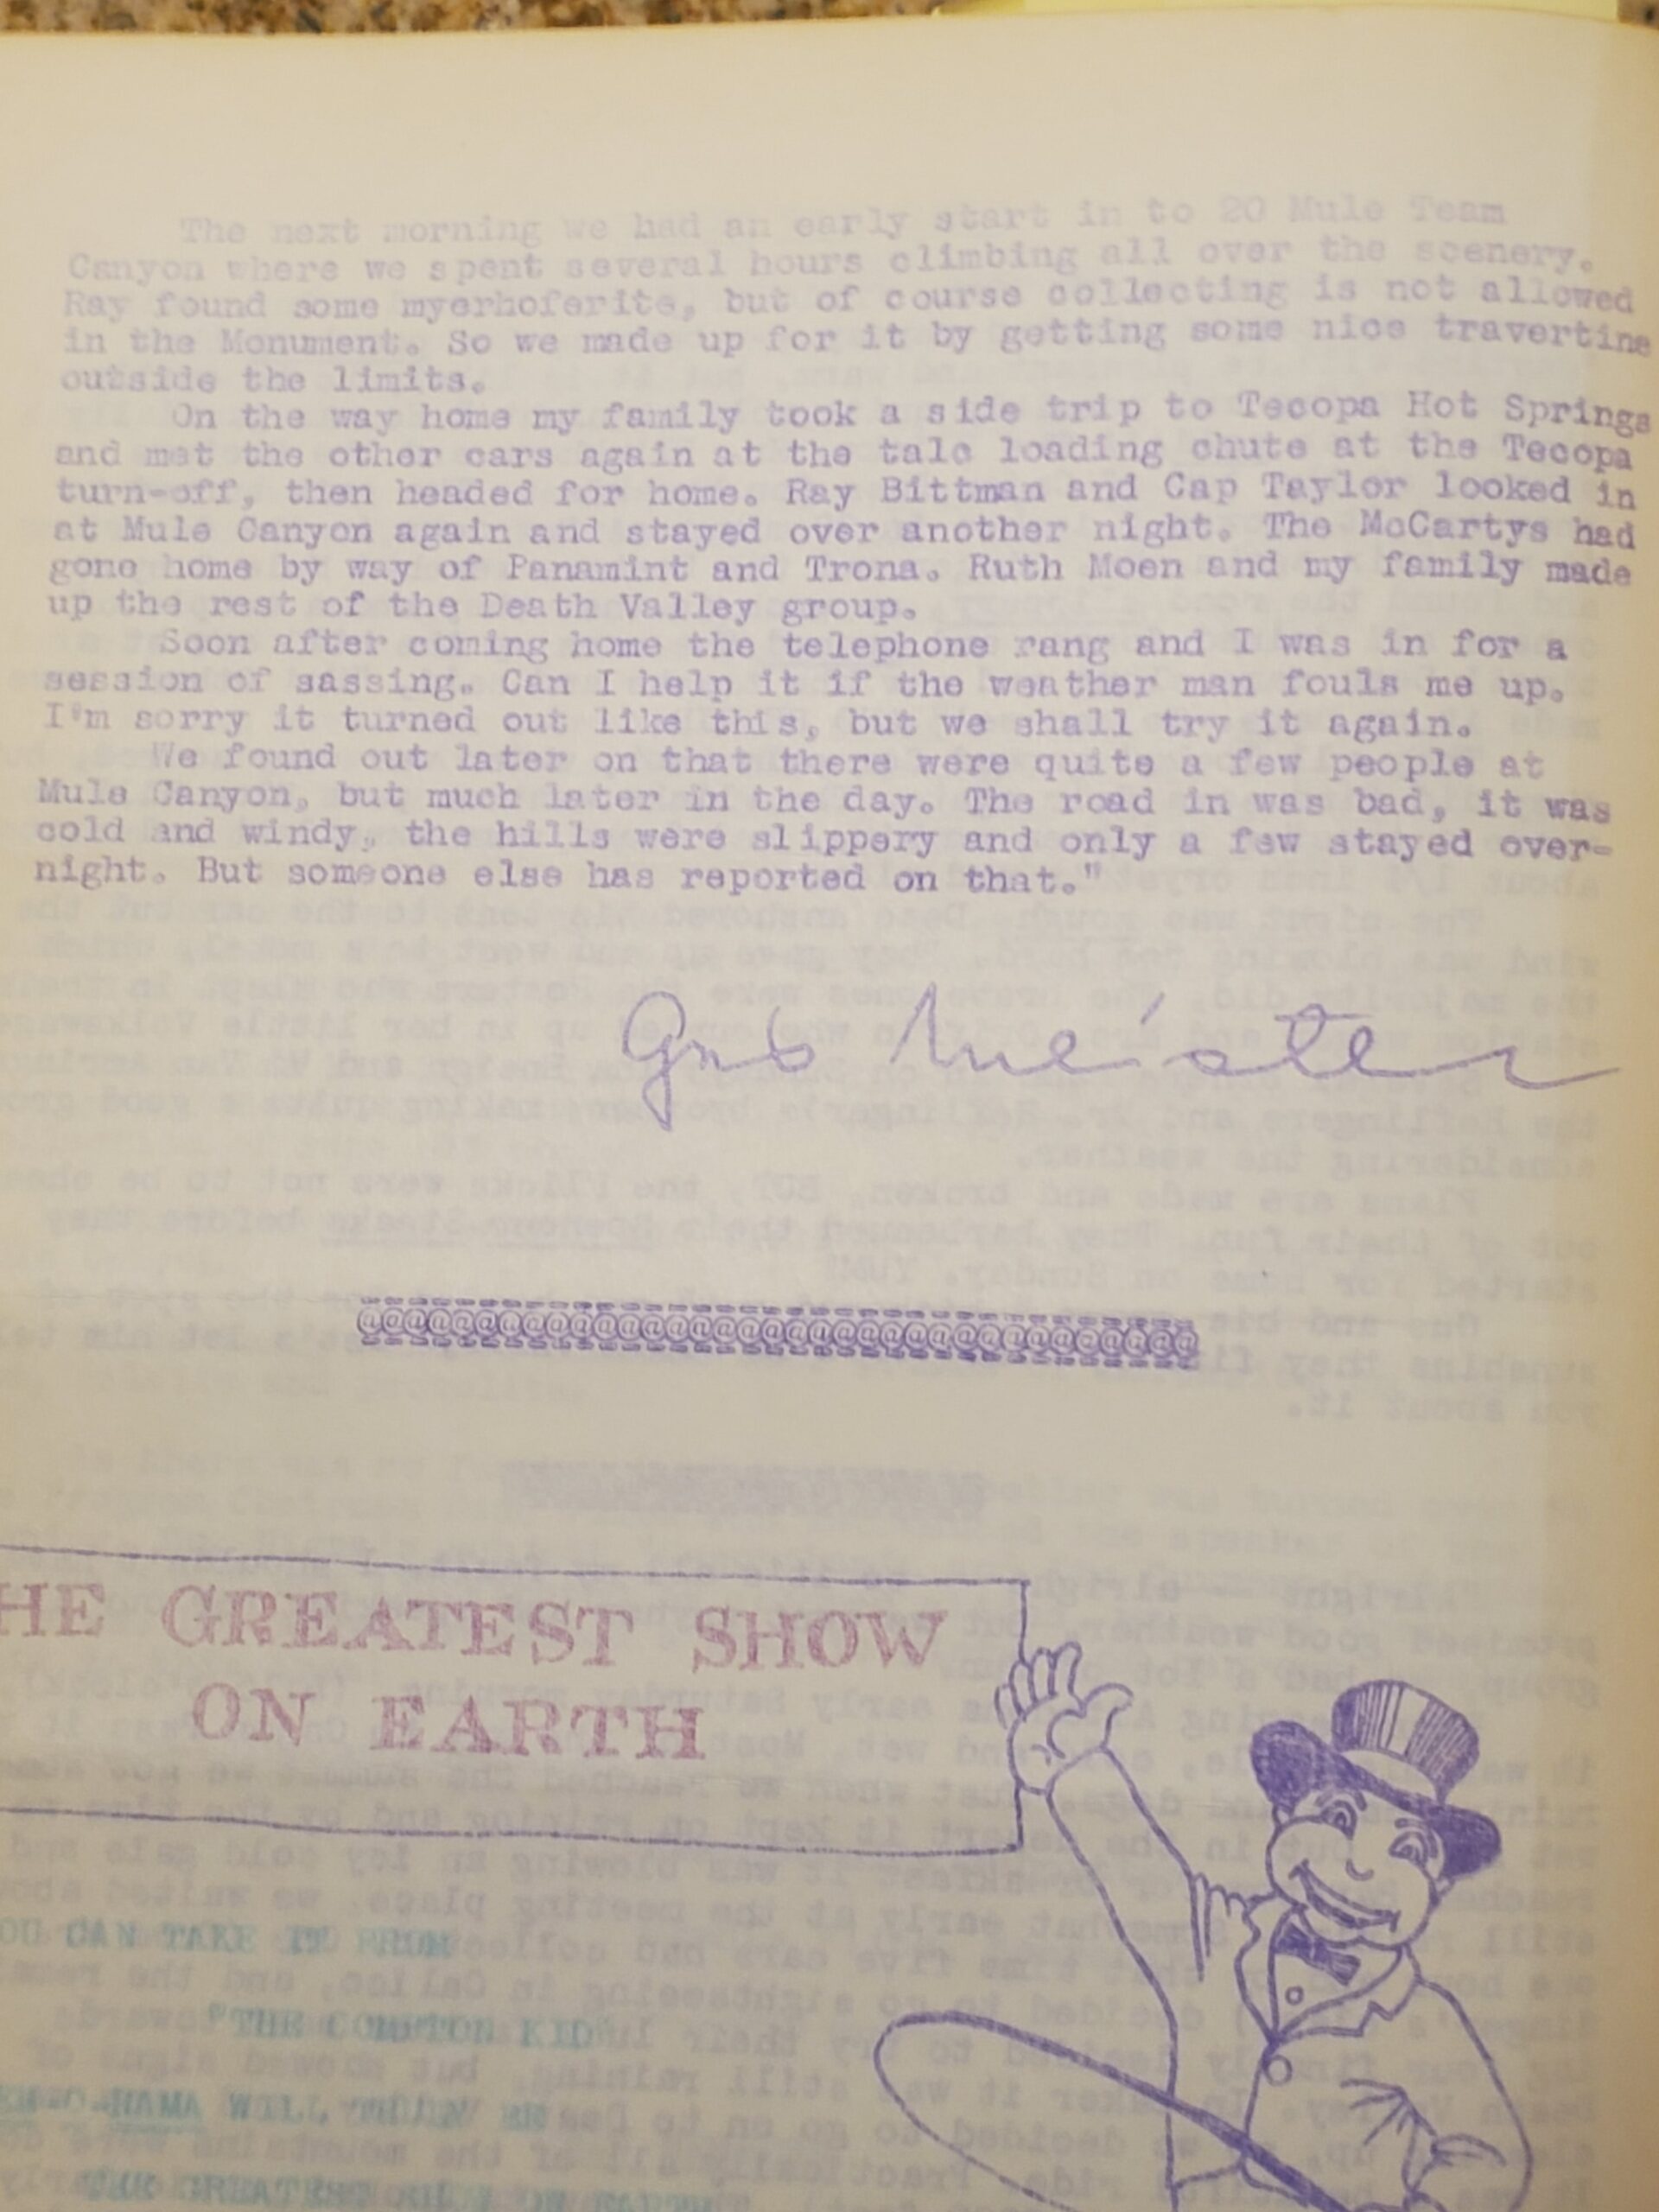 The next morning we had an early start in to 20 Mule Team
Canyon where we spent several hours climbing all over the scenery.
Ray found some myerhoferite, but of course collecting is not allowed
in the Monument. So we made up for it by getting some nice travertine
outside the limits.
On the way home my family took a side trip to Tecopa Hot Springs
and met the other cars again at the talc loading chute at the Tecopa
turn-off, then headed for home. Ray Bittman and Cap Taylor looked in
at Mule Canyon again and stayed over another night. The McCartys had
gone home by way of Panamint and Trona. Ruth Moen and my family made
up the rest of the Death Valley group.
Soon after coming home the telephone rang and I was in for a
session of sassing. Can I help it if the weather man fouls me up.
I'm sorry it turned out like this, but we shall try it again.
We found out later on that there were quite a few people at
Mule Canyon, but much later in the day. The road in was bad, it was
cold and windy, the hills were slippery and only a few stayed over-
night. But someone else has reported on that."
Gus Meister
@@@@@@@@@@@@@@@@@@@@@@@@@@@@@@@@@@@
HE GREATEST SHOW
ON EARTH
OU CAN TAKE IT FROM
"THE COMPTON KID"
RAMA WILL
THE GREATEST SHOW ON EARTH